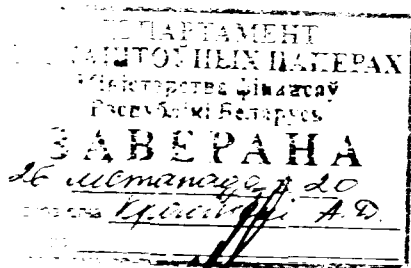 ДЭПАРТАМЕНТ
КАШТОЎНЫХ ПАПЕРАХ
Міністэрства фінансаў
Рэспублікі Беларусь
ЗАВЕРАНА
26 лістапада 20
А.Д.